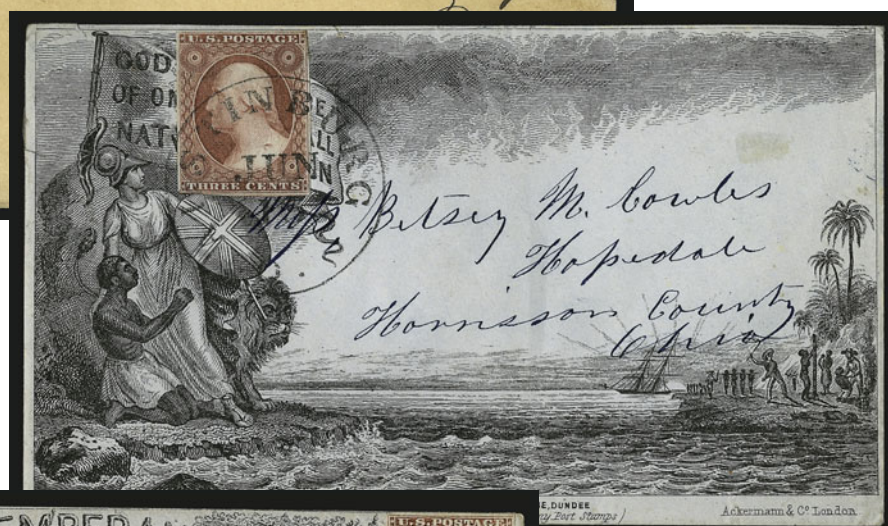 GOD
OF ON
NAT
ALL
U.S. POSTAGE
THREE CENTS
JUN
Miss Betsey M. Cowles
Hopedale
Harrisson County
Ohio
SE, DUNDEE
ny Post Stamps)
Ackermann & Co. London
EMBER
U.S. POSTAGE